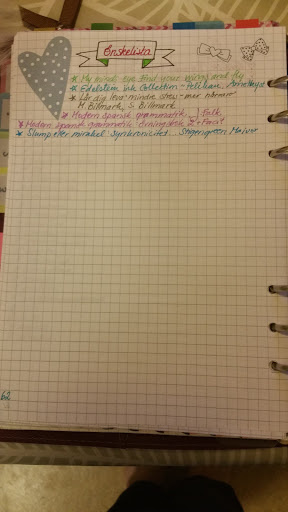 Önskelista
* My mind-eye Find your wings and fly
* Edelstein Ink Collection - Pelikan, Amethyst
* Lär dig leva mindre stress - mer närvaro
M. Billmark, S. Billmark
* Modern spansk grammatik } Falk
* Modern spansk grammatik övningsbok + Facit
* Slump eller mirakel Synkronicitet... Stigengreen Maivor
62